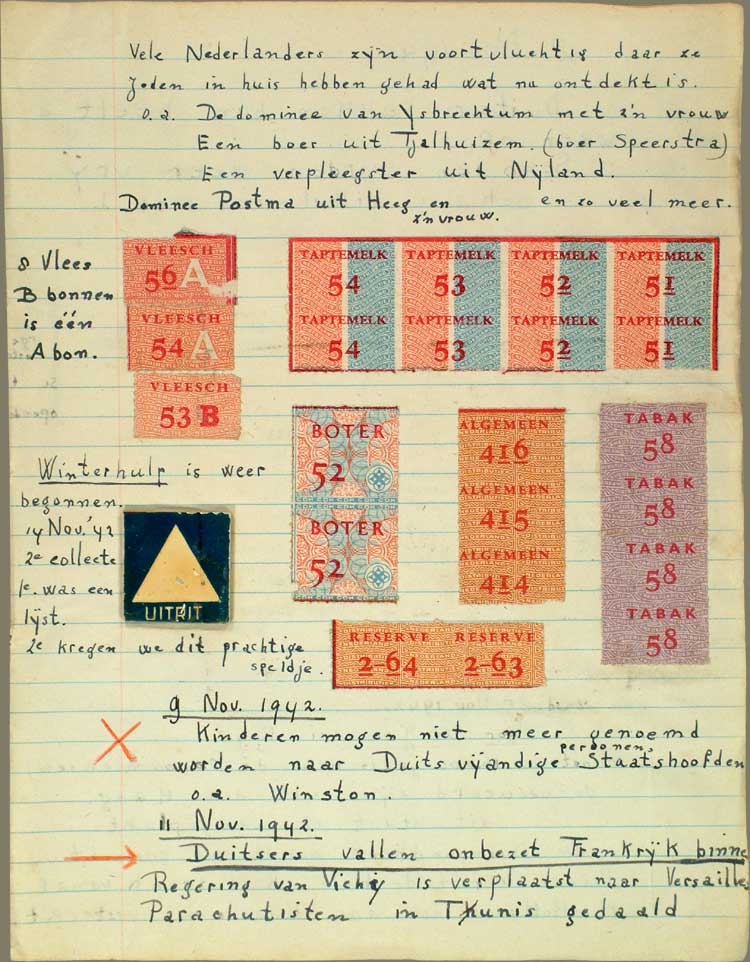 Vele Nederlanders zijn voortvluchtig daar ze
Joden in huis hebben gehad wat nu ontdekt is.
o.a. De dominee van Ysbrechtum met z'n vrouw
Een boer uit Tjalhuizem. (boer Speerstra)
Een verpleegster uit Nijland.
Dominee Postma uit Heeg en z'n vrouw. en zo veel meer.
8 Vlees
B bonnen
is één
A bon.
VLEESCH
56 A
VLEESCH
54 A
VLEESCH
53 B
TAPTEMELK TAPTEMELK TAPTEMELK TAPTEMELK
54 53 52 51
TAPTEMELK TAPTEMELK TAPTEMELK TAPTEMELK
54 53 52 51
BOTER
52
BOTER
52
ALGEMEEN
416
ALGEMEEN
415
ALGEMEEN
414
TABAK
58
TABAK
58
TABAK
58
TABAK
58
Winterhulp is weer
begonnen.
14 Nov. '42
2e collecte
1e. was een
lijst.
2e kregen we dit prachtige
speldje.
UITRIT
RESERVE RESERVE
2-64 2-63
9 Nov. 1942.
Kinderen mogen niet meer genoemd
worden naar Duits vijandige personen, Staatshoofden
o.a. Winston.
11 Nov. 1942.
Duitsers vallen onbezet Frankrijk binne
Regering van Vichy is verplaatst naar Versailles
Parachutisten in Tunis gedaald